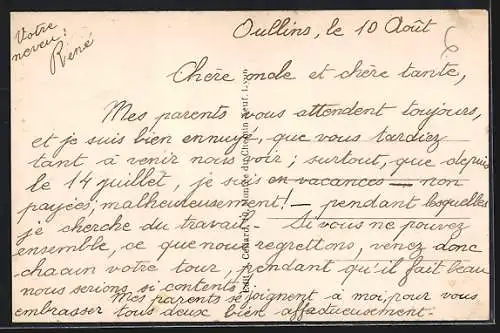 Oullins, le 10 Août
Chère oncle et chère tante,
Mes parents vous attendent toujours,
et je suis bien ennuyé, que vous tardiez
tant à venir nous voir ; surtout, que depuis
le 14 juillet, je suis en vacances — non
payées, malheureusement! — pendant lesquelles
je cherche du travail. Si vous ne pouvez
ensemble, ce que nous regrettons, venez donc
chacun votre tour, pendant qu'il fait beau
nous serions si contents!
Mes parents se joignent à moi, pour vous
embrasser tous deux bien affectueusement.
Votre
neveu:
René
Edit. Cenard, 10, Montée du Chemin neuf. Lyon